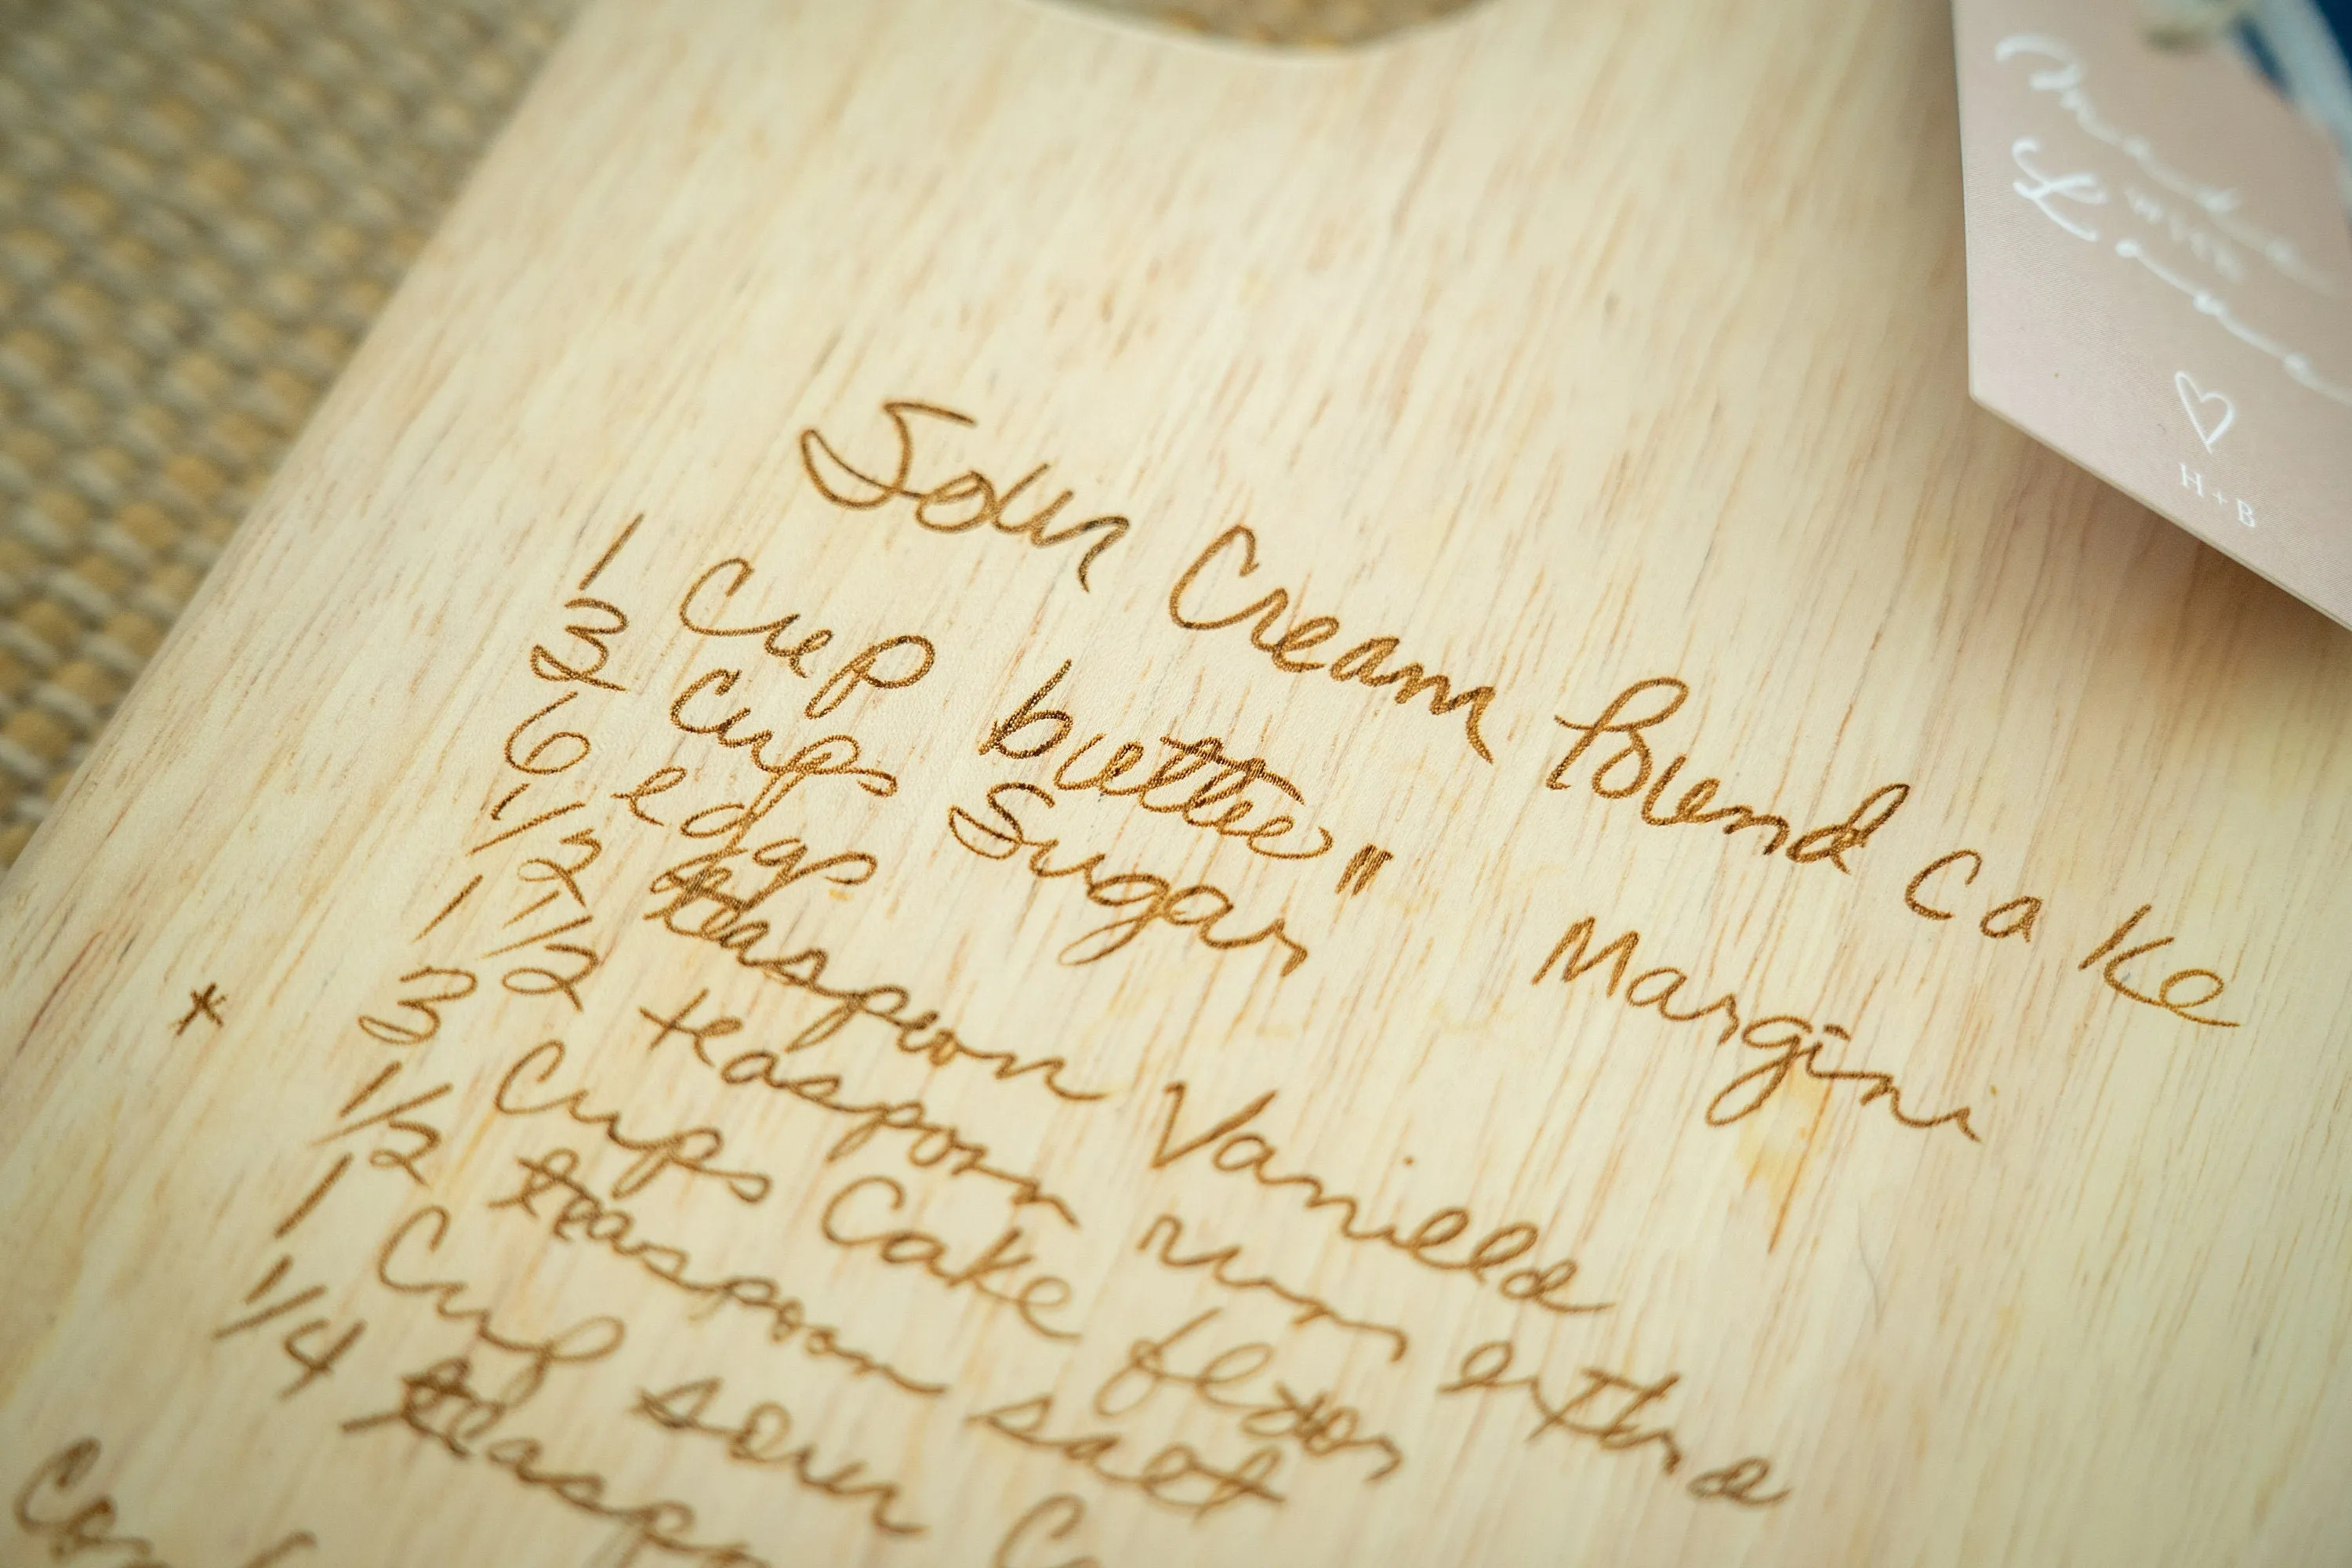 Sour Cream Pound Cake
1 Cup butter " Margini
3 Cups Sugar
6 eggs
1/2 teaspoon Vanilla
1 1/2 teaspoon rum extra
* 3 Cups Cake flour
1/2 teaspoon salt
1 Cup sour
1/4
made
with
Love
H + B